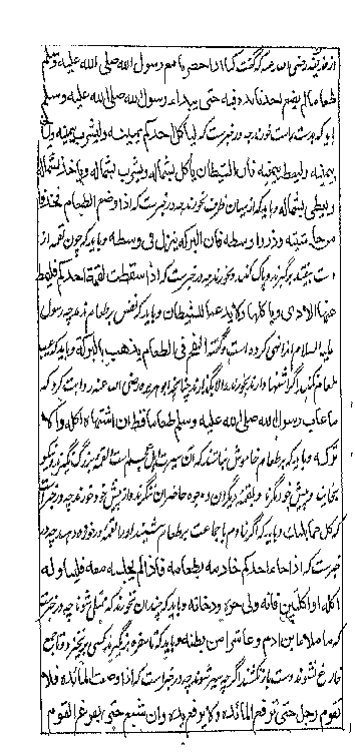 از حذیفه رضی الله عنه که گفت کنا اذا حضرنا مع رسول الله صلی الله علیه وسلم
طعاما لم یضع احدنا یده فیه حتی یبداء رسول الله صلی الله علیه وسلم
باید که بدست راست خورند چه در خبرست که لیاکل احدکم بیمینه ولیشرب بیمینه ولیاخذ
بیمینه ولیعط بیمینه فان الشیطان یاکل بشماله ویشرب بشماله ویاخذ بشماله
ویعطی بشماله و باید که از میان ظرف نخورند چه در خبرست که اذا وضع الطعام فخذوا
من حافتیه وذروا وسطه فان البرکه ینزل فی وسطه و باید که چون لقمه از
دست بیفتد برگیرند و پاک کنند و بخورند چه در خبرست که اذا سقطت لقمة احدکم فلیمط
عنها الاذی ویاکلها ولا یدعها للشیطان و باید که نفس بر طعام نزنند چه رسول
علیه السلام از آن نهی کرده است و گفته النفخ فی الطعام یذهب بالبرکة و باید که عیب
طعام نکنند اگر اشتها دارند بخورند والا بگذارند چنانچه ابو هریره رضی الله عنه روایت کرد که
ما عاب رسول الله صلی الله علیه وسلم طعاما قط ان اشتهاه اکله والا
ترکه و باید که بر طعام خاموش نباشند که آن سیرت اهل عجم است و لقمه بزرگ نگیرند و نیکو
بخایند و از پیش خود خورند و بلقمه دیگران و وجوه حاضران ننگرند و از پیش خود خورند چه در خبرست
که کل مما یلیک و باید که اگر خادم با جماعت بر طعام ننشیند او را لقمه در خورد دهند چه در
خبرست که اذا جاء احدکم خادمه بطعامه فاذا لم یجلسه معه فلیناوله
اکله او اکلتین فانه ولی حره ودخانه و باید که چندان نخورند که ممتلی شوند چه در خبرست
که ما ملاء ابن ادم وعاء شرا من بطنه و باید که تا سفره برنگیرند کسی برنخیزد و تا جمع
فارغ نشوند دست باز نکشند اگر چه سیر شوند چه در خبرست که اذا وضعت المائده فلا
یقوم رجل حتی ترفع المائده ولا یرفع یده وان شبع حتی یفرغ القوم